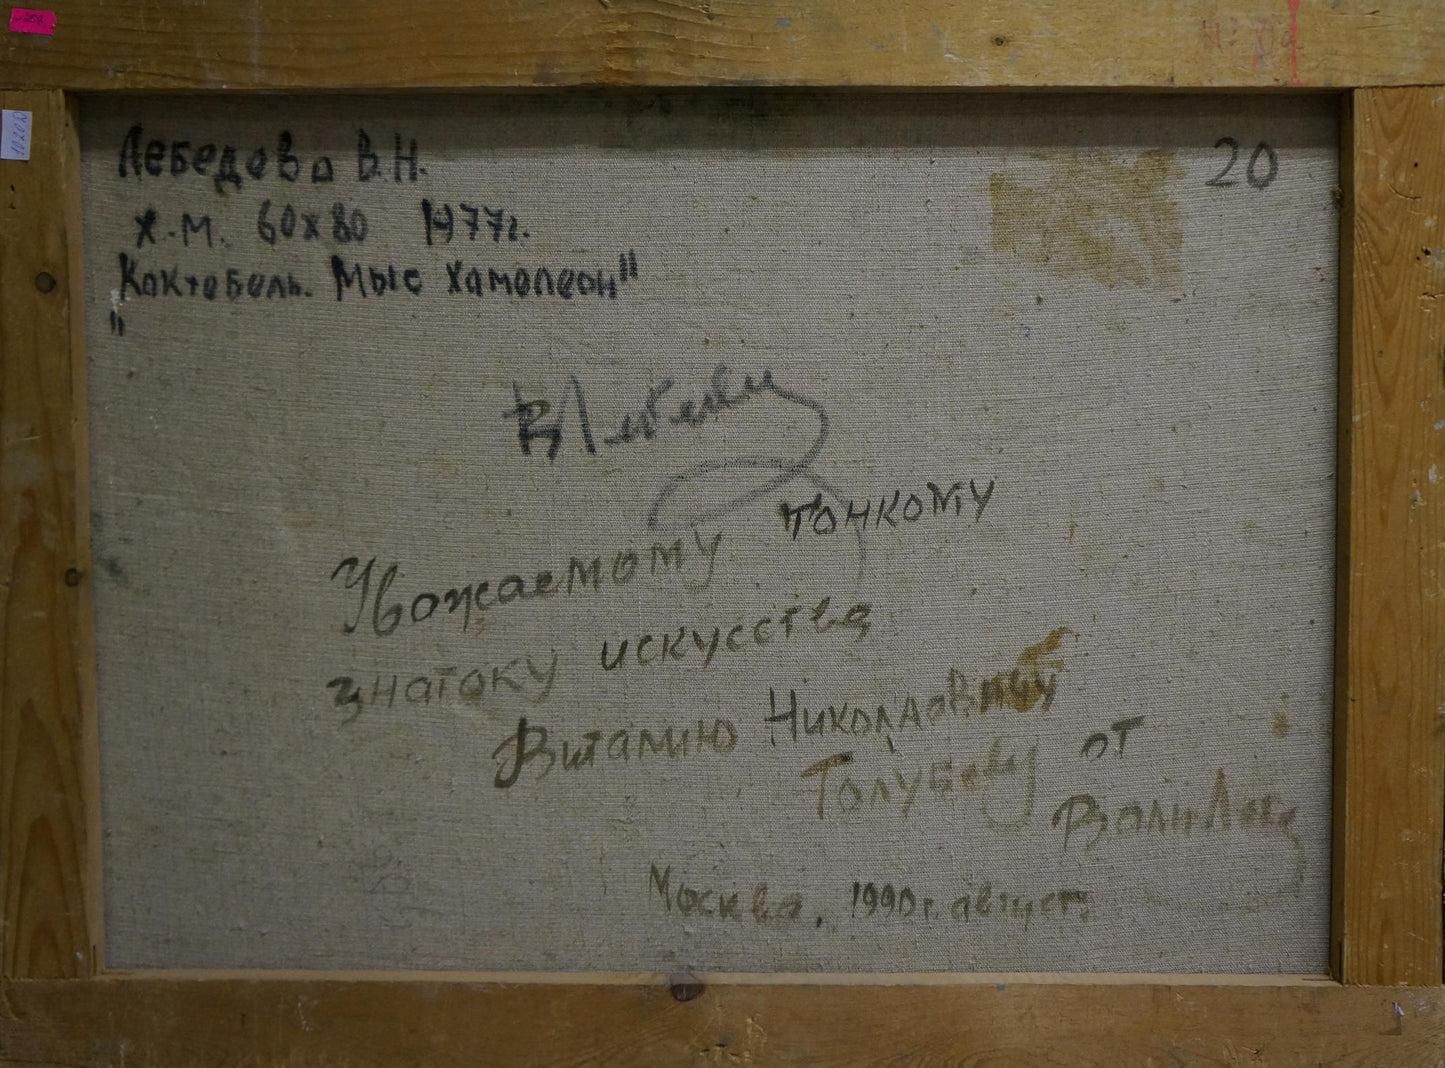 Лебедева В.Н.
20
х.м. 60х80 1977г.
Коктебель. Мыс Хамелеон"
"
Уважаемому тонкому
знатоку искусства
Виталию Николаевичу
Голубеву от
Вали
Москва, 1990г. август
10202